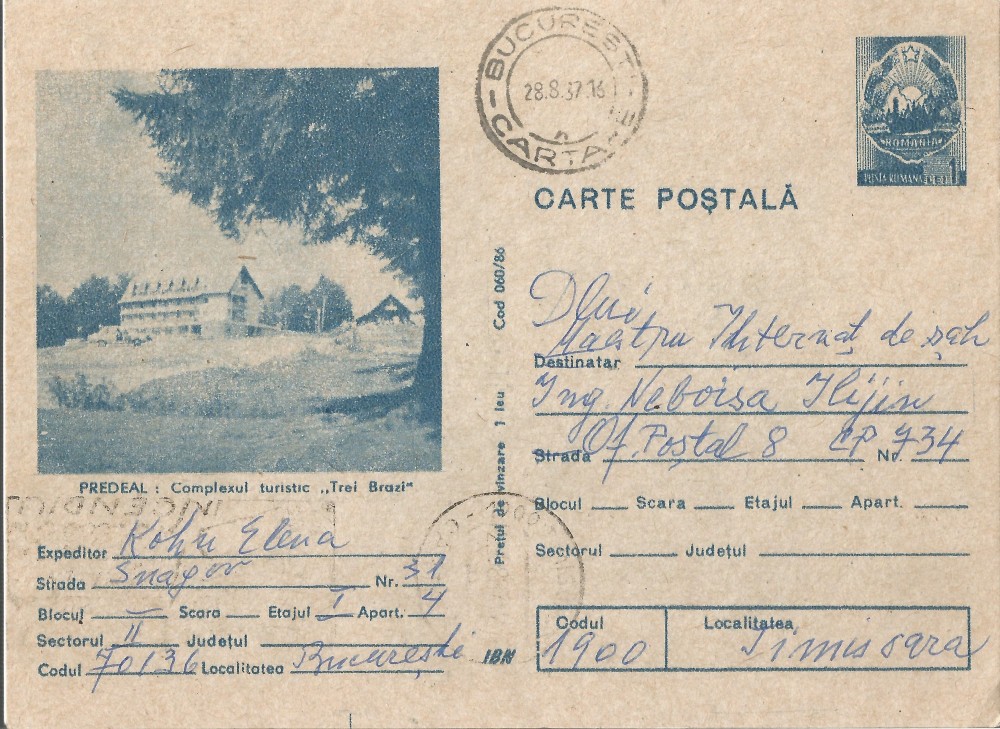 BUCUREȘTI
28.8.87.16
CARTARE
ROMANIA
POSTA ROMANA 1 LEU
CARTE POȘTALĂ
PREDEAL : Complexul turistic „Trei Brazi"
Expeditor Kohn Elena
Strada Snagov Nr. 31
Blocul — Scara Etajul I Apart. 4
Sectorul II Județul
Codul 70136 Localitatea București
Prețul de vînzare 1 leu Cod 060/86
IBN
Dlui
Maestru Internaț de șah
Destinatar
Ing Neboisa Ilijin
Strada Of. Poștal 8 CP 734 Nr.
Blocul Scara Etajul Apart.
Sectorul Județul
Codul Localitatea
1900 Timisoara